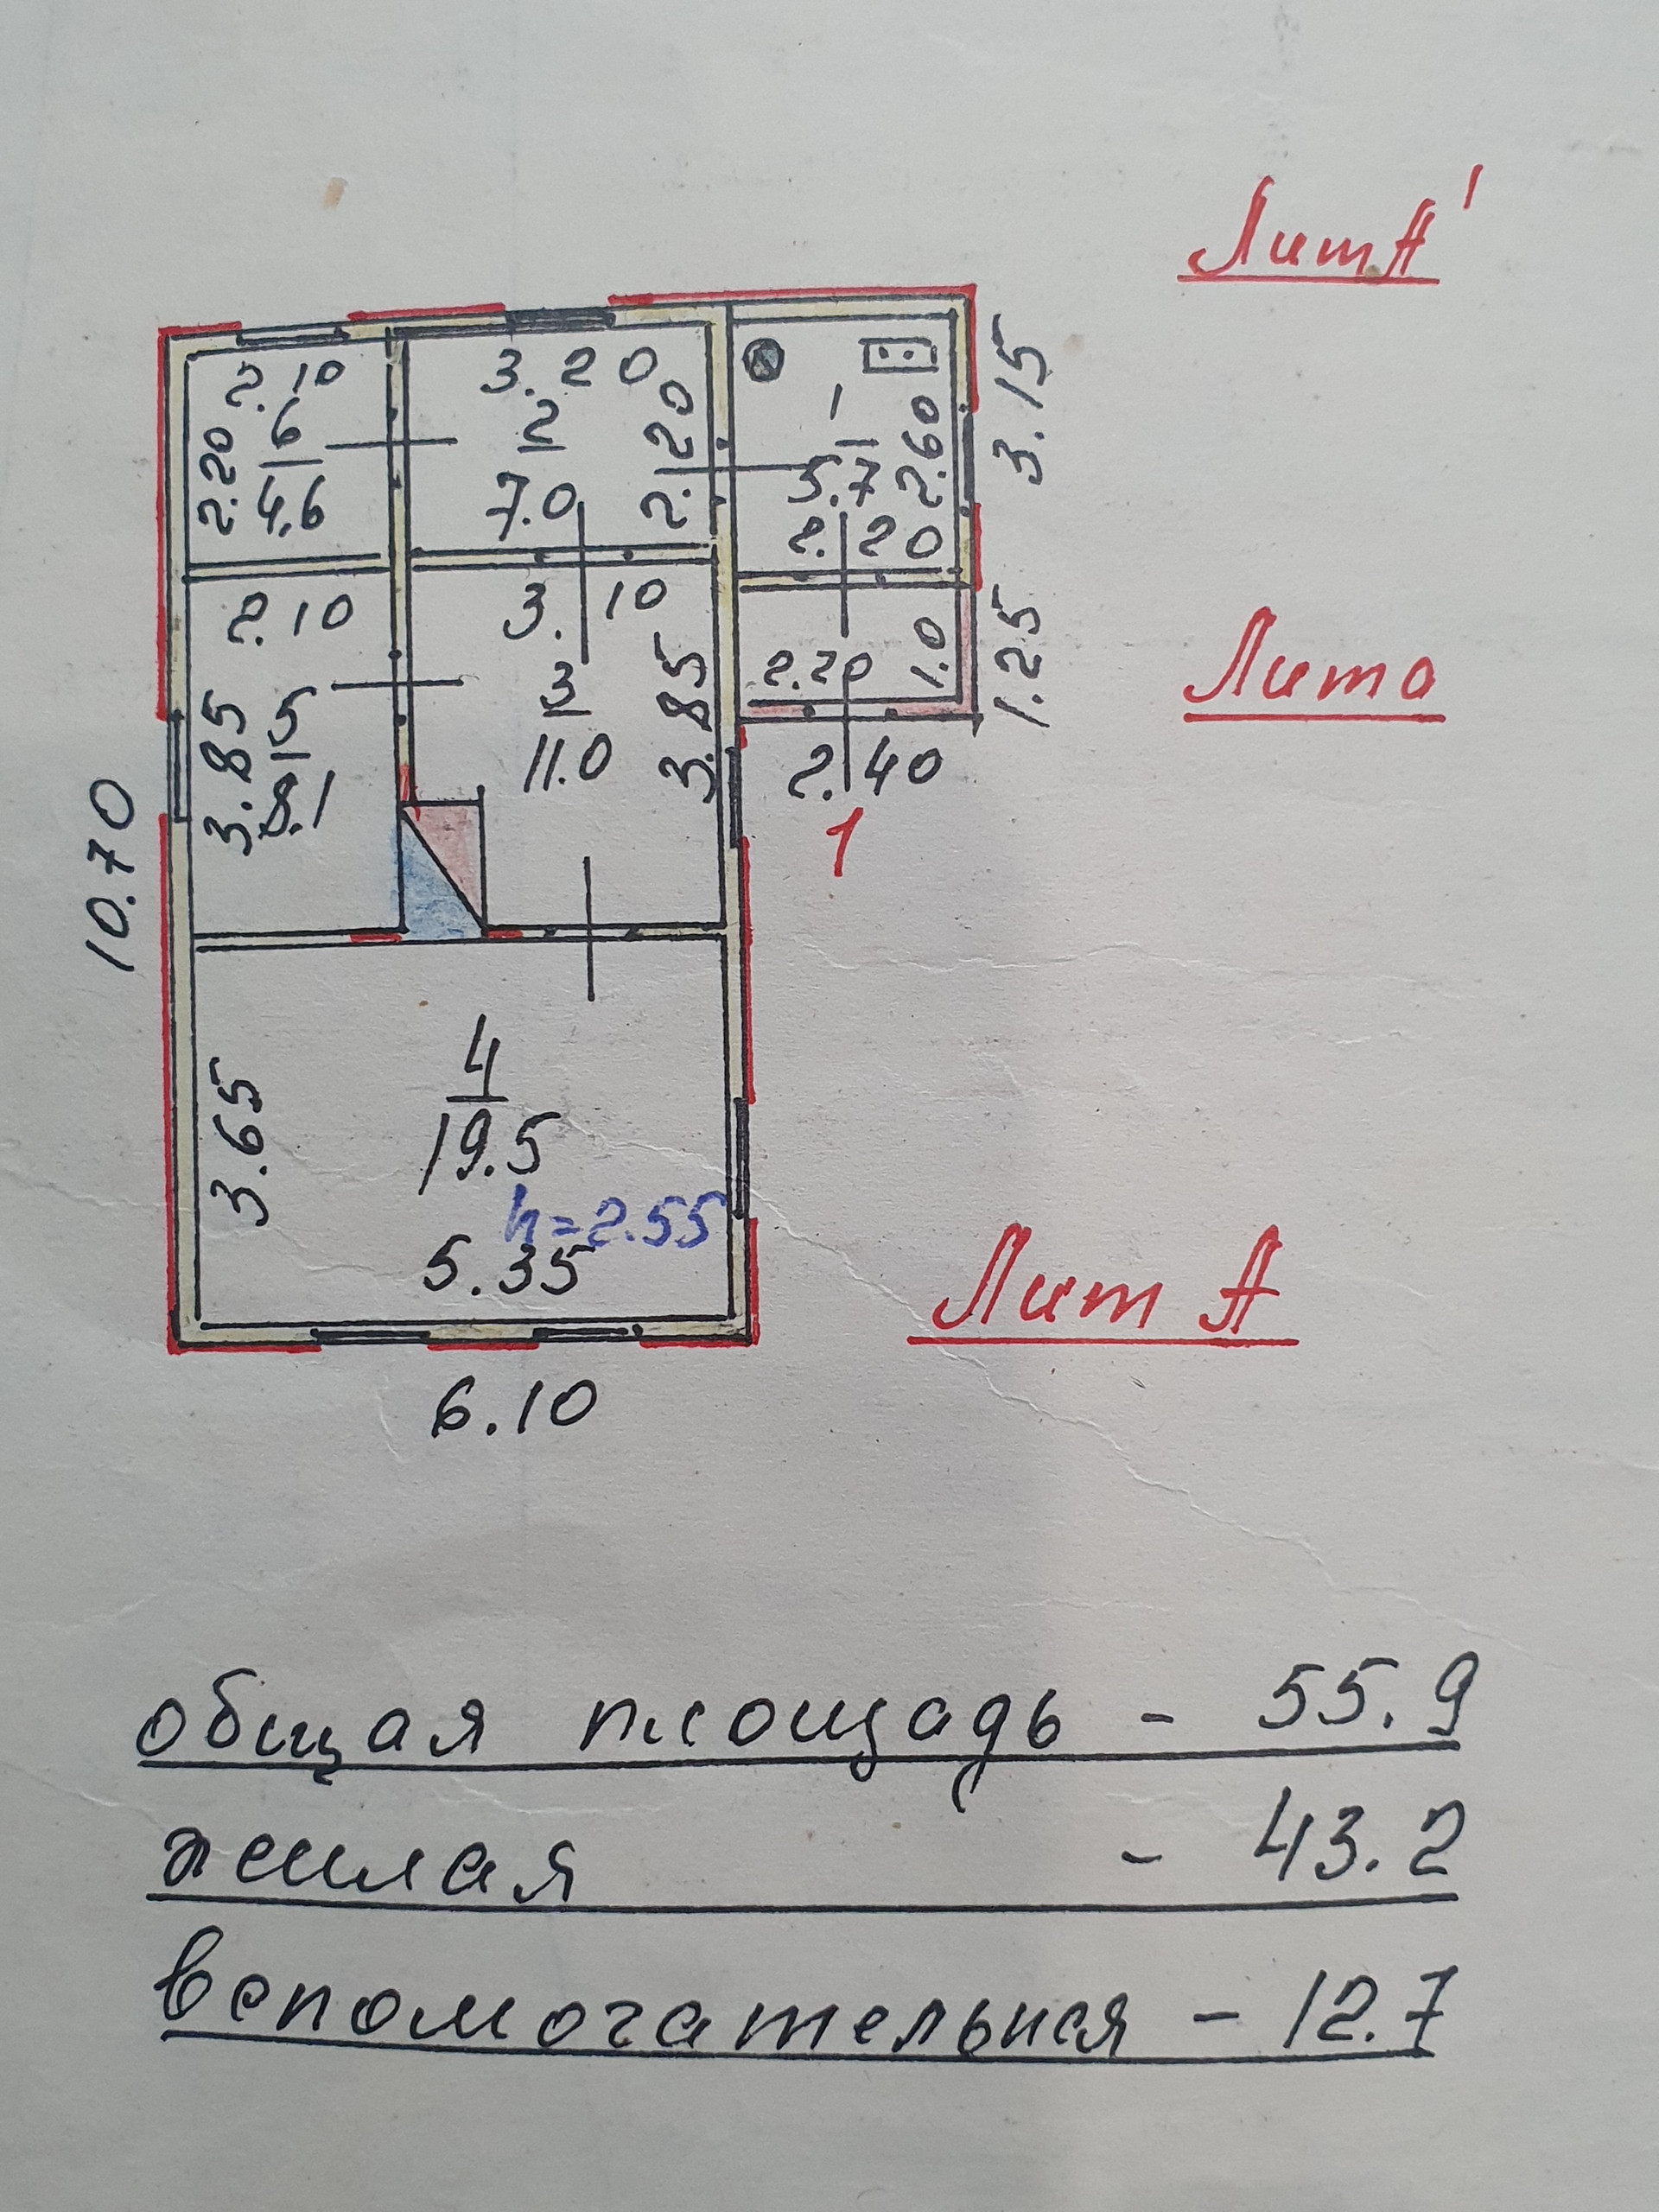 Лит А'
2.10
6
4.6
2.20
3.20
2
7.0
2.20
1
5.7
2.60
2.20
3.15
2.10
5
8.1
3.85
3.10
3
11.0
3.85
2.20
1.0
1.25
2.40
1
Лит а
10.70
4
19.5
3.65
h=2.55
5.35
Лит А
6.10
общая площадь - 55.9
жилая - 43.2
вспомогательная - 12.7